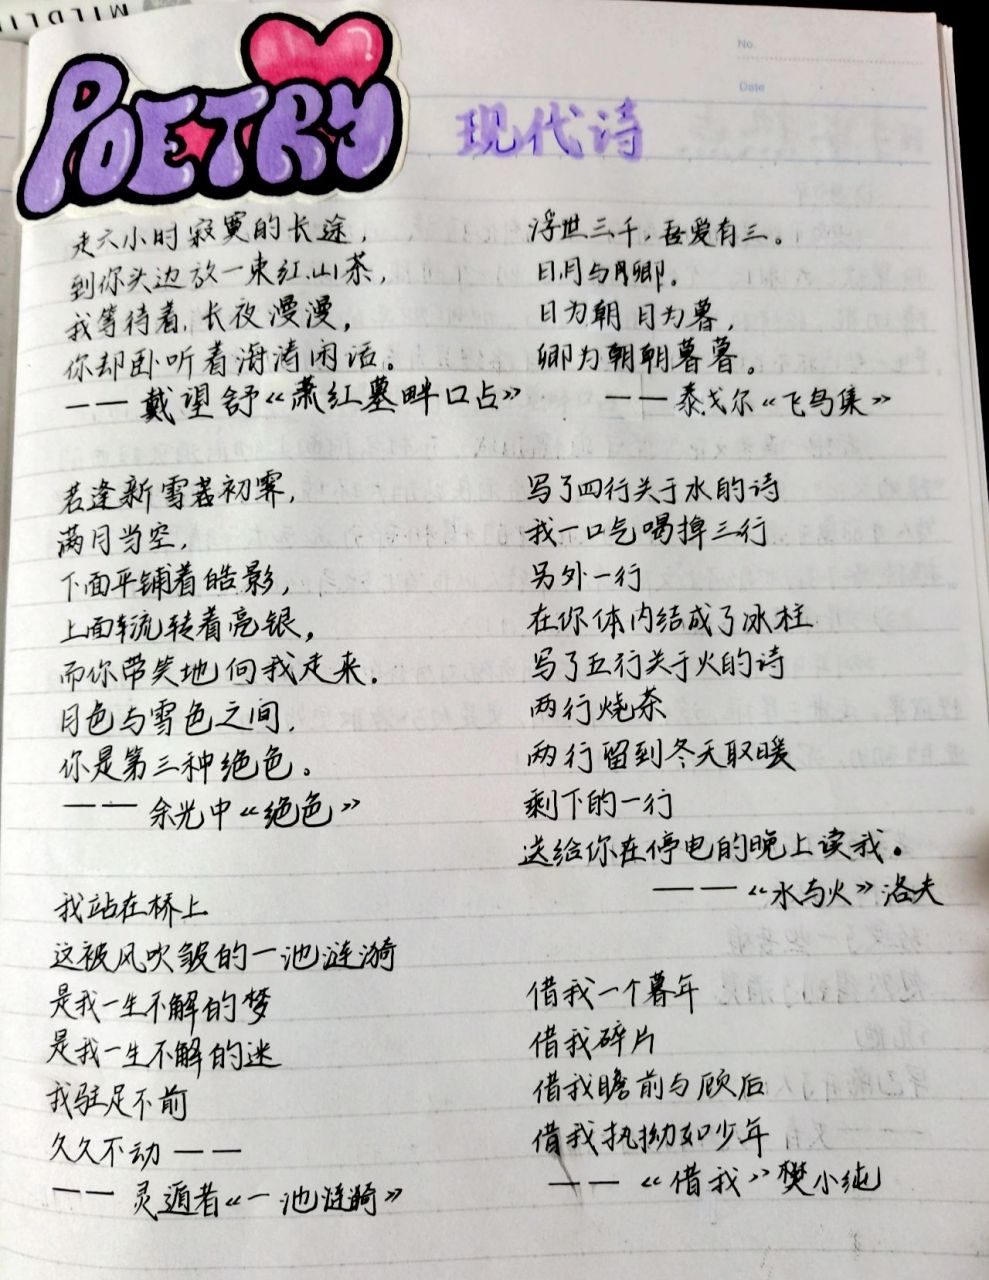 MILDLIN
No.
Date
POETRY
现代诗
走六小时寂寞的长途，
到你头边放一束红山茶，
我等待着，长夜漫漫，
你却卧听着海涛闲话。
——戴望舒《萧红墓畔口占》
若逢新雪若初霁，
满月当空，
下面平铺着皓影，
上面车流转着亮银，
而你带笑地向我走来。
月色与雪色之间，
你是第三种绝色。
——余光中《绝色》
我站在桥上
这被风吹皱的一池涟漪
是我一生不解的梦
是我一生不解的迷
我驻足不前
久久不动——
——灵遁者《一池涟漪》
浮世三千，吾爱有三。
日月与卿。
日为朝 月为暮，
卿为朝朝暮暮。
——泰戈尔《飞鸟集》
写了四行关于水的诗
我一口气喝掉三行
另外一行
在你体内结成了冰柱
写了五行关于火的诗
两行烧茶
两行留到冬天取暖
剩下的一行
送给你在停电的晚上读我。
——《水与火》洛夫
借我一个暮年
借我碎片
借我瞻前与顾后
借我执拗如少年
——《借我》樊小纯